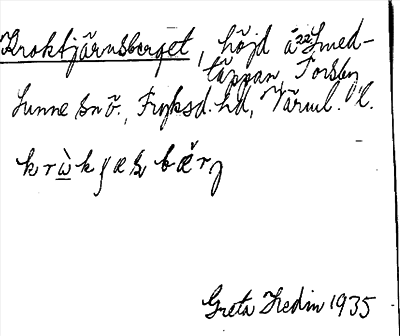 Kroktjärnsberget, höjd å 22 Smed-
täppan, Torsby
Sunne sn ö., Fryksd. hd, Värml. l.
Greta Hedin 1935